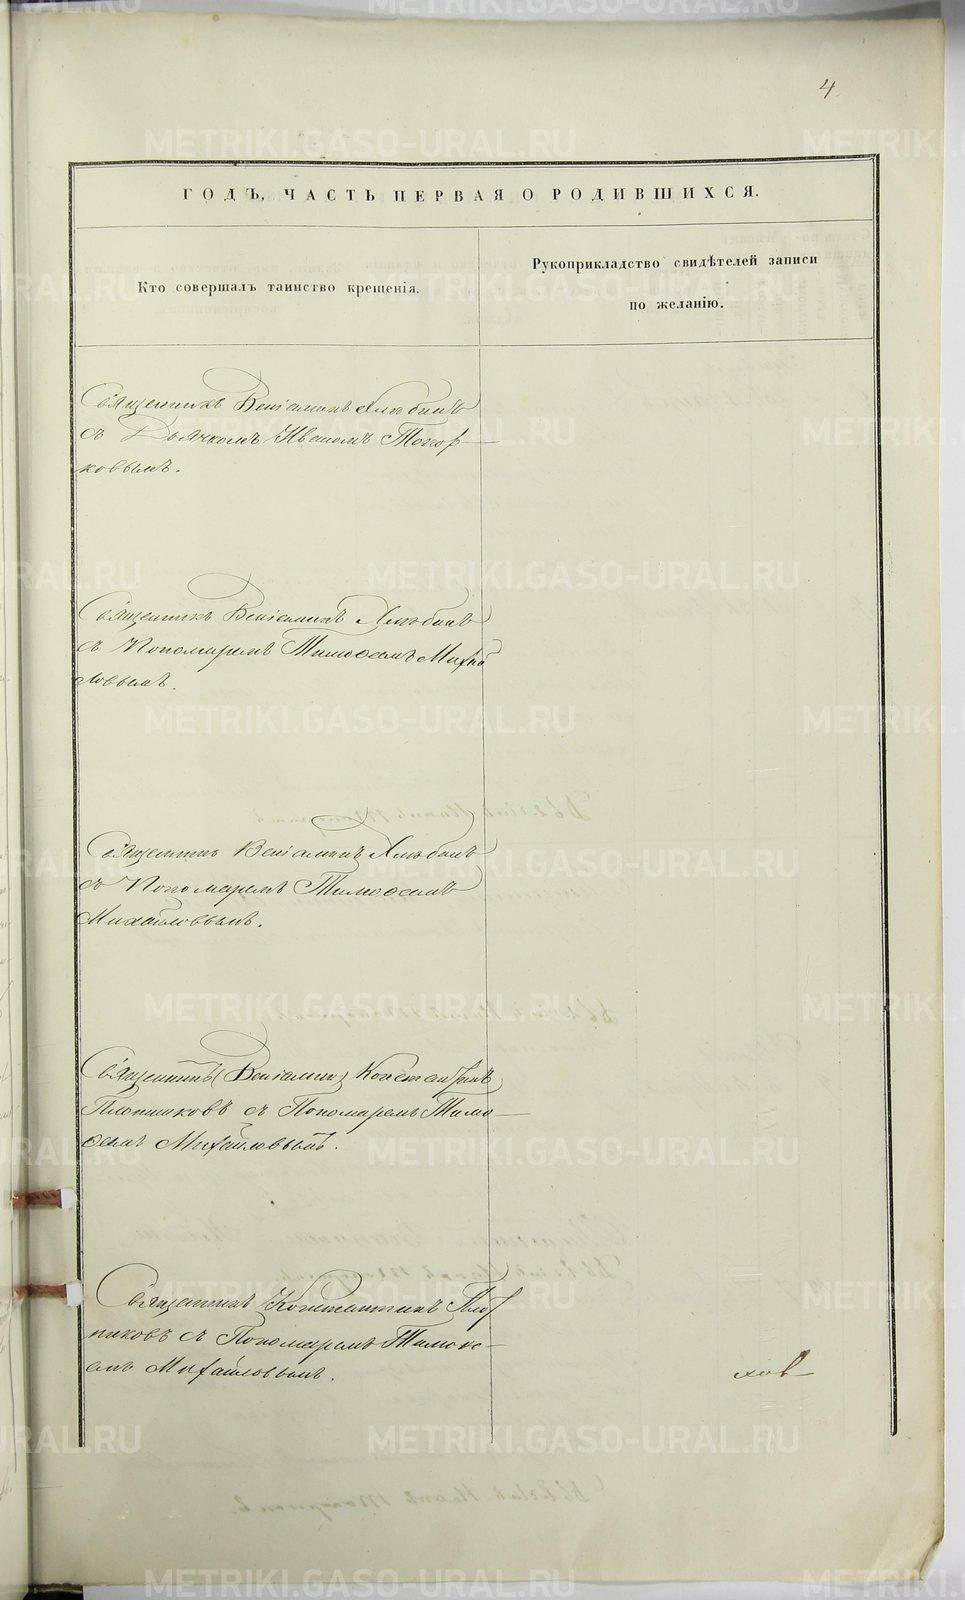 4
ГОДЪ, ЧАСТЬ ПЕРВАЯ О РОДИВШИХСЯ.
Кто совершалъ таинство крещенія.
Рукоприкладство свидѣтелей записи
по желанію.
Священникъ Веніаминъ Хлѣбинъ
съ Дьячкомъ Иваномъ Топор-
ковымъ.
Священникъ Веніаминъ Хлѣбинъ
съ Пономаремъ Тимоѳеемъ Михай
ловымъ.
Священникъ Веніаминъ Хлѣбинъ
съ Пономаремъ Тимоѳеемъ
Михайловымъ.
Священникъ (Веніамин) Константинъ
съ Пономаремъ Тимо-
ѳеемъ Михайловымъ.
Священникъ Константинъ
никовъ съ Пономаремъ Тимоѳе-
емъ Михайловымъ.
METRIKI.GASO-URAL.RU